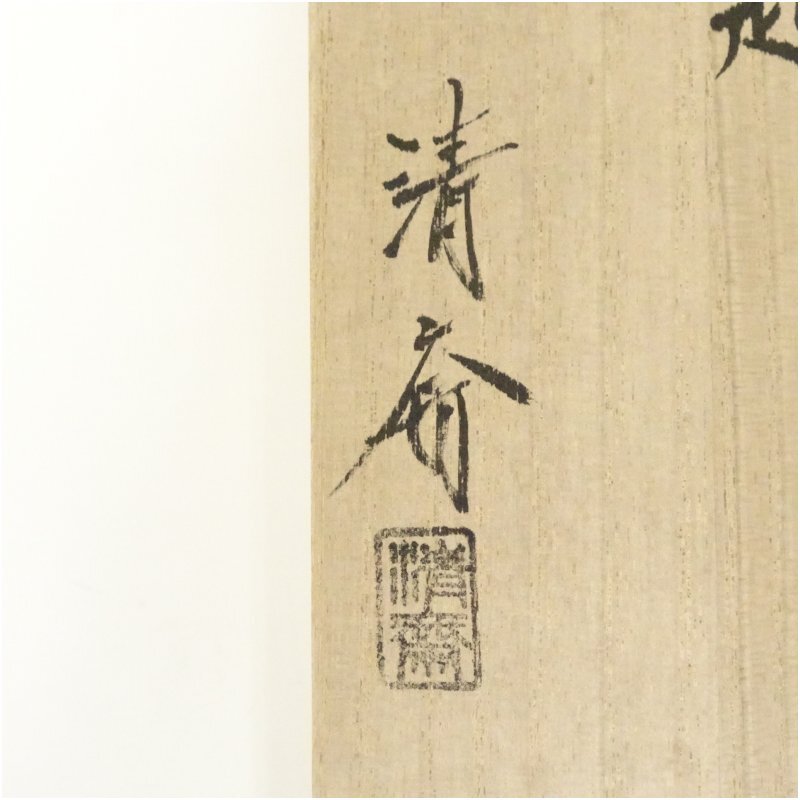 清斎
清斎